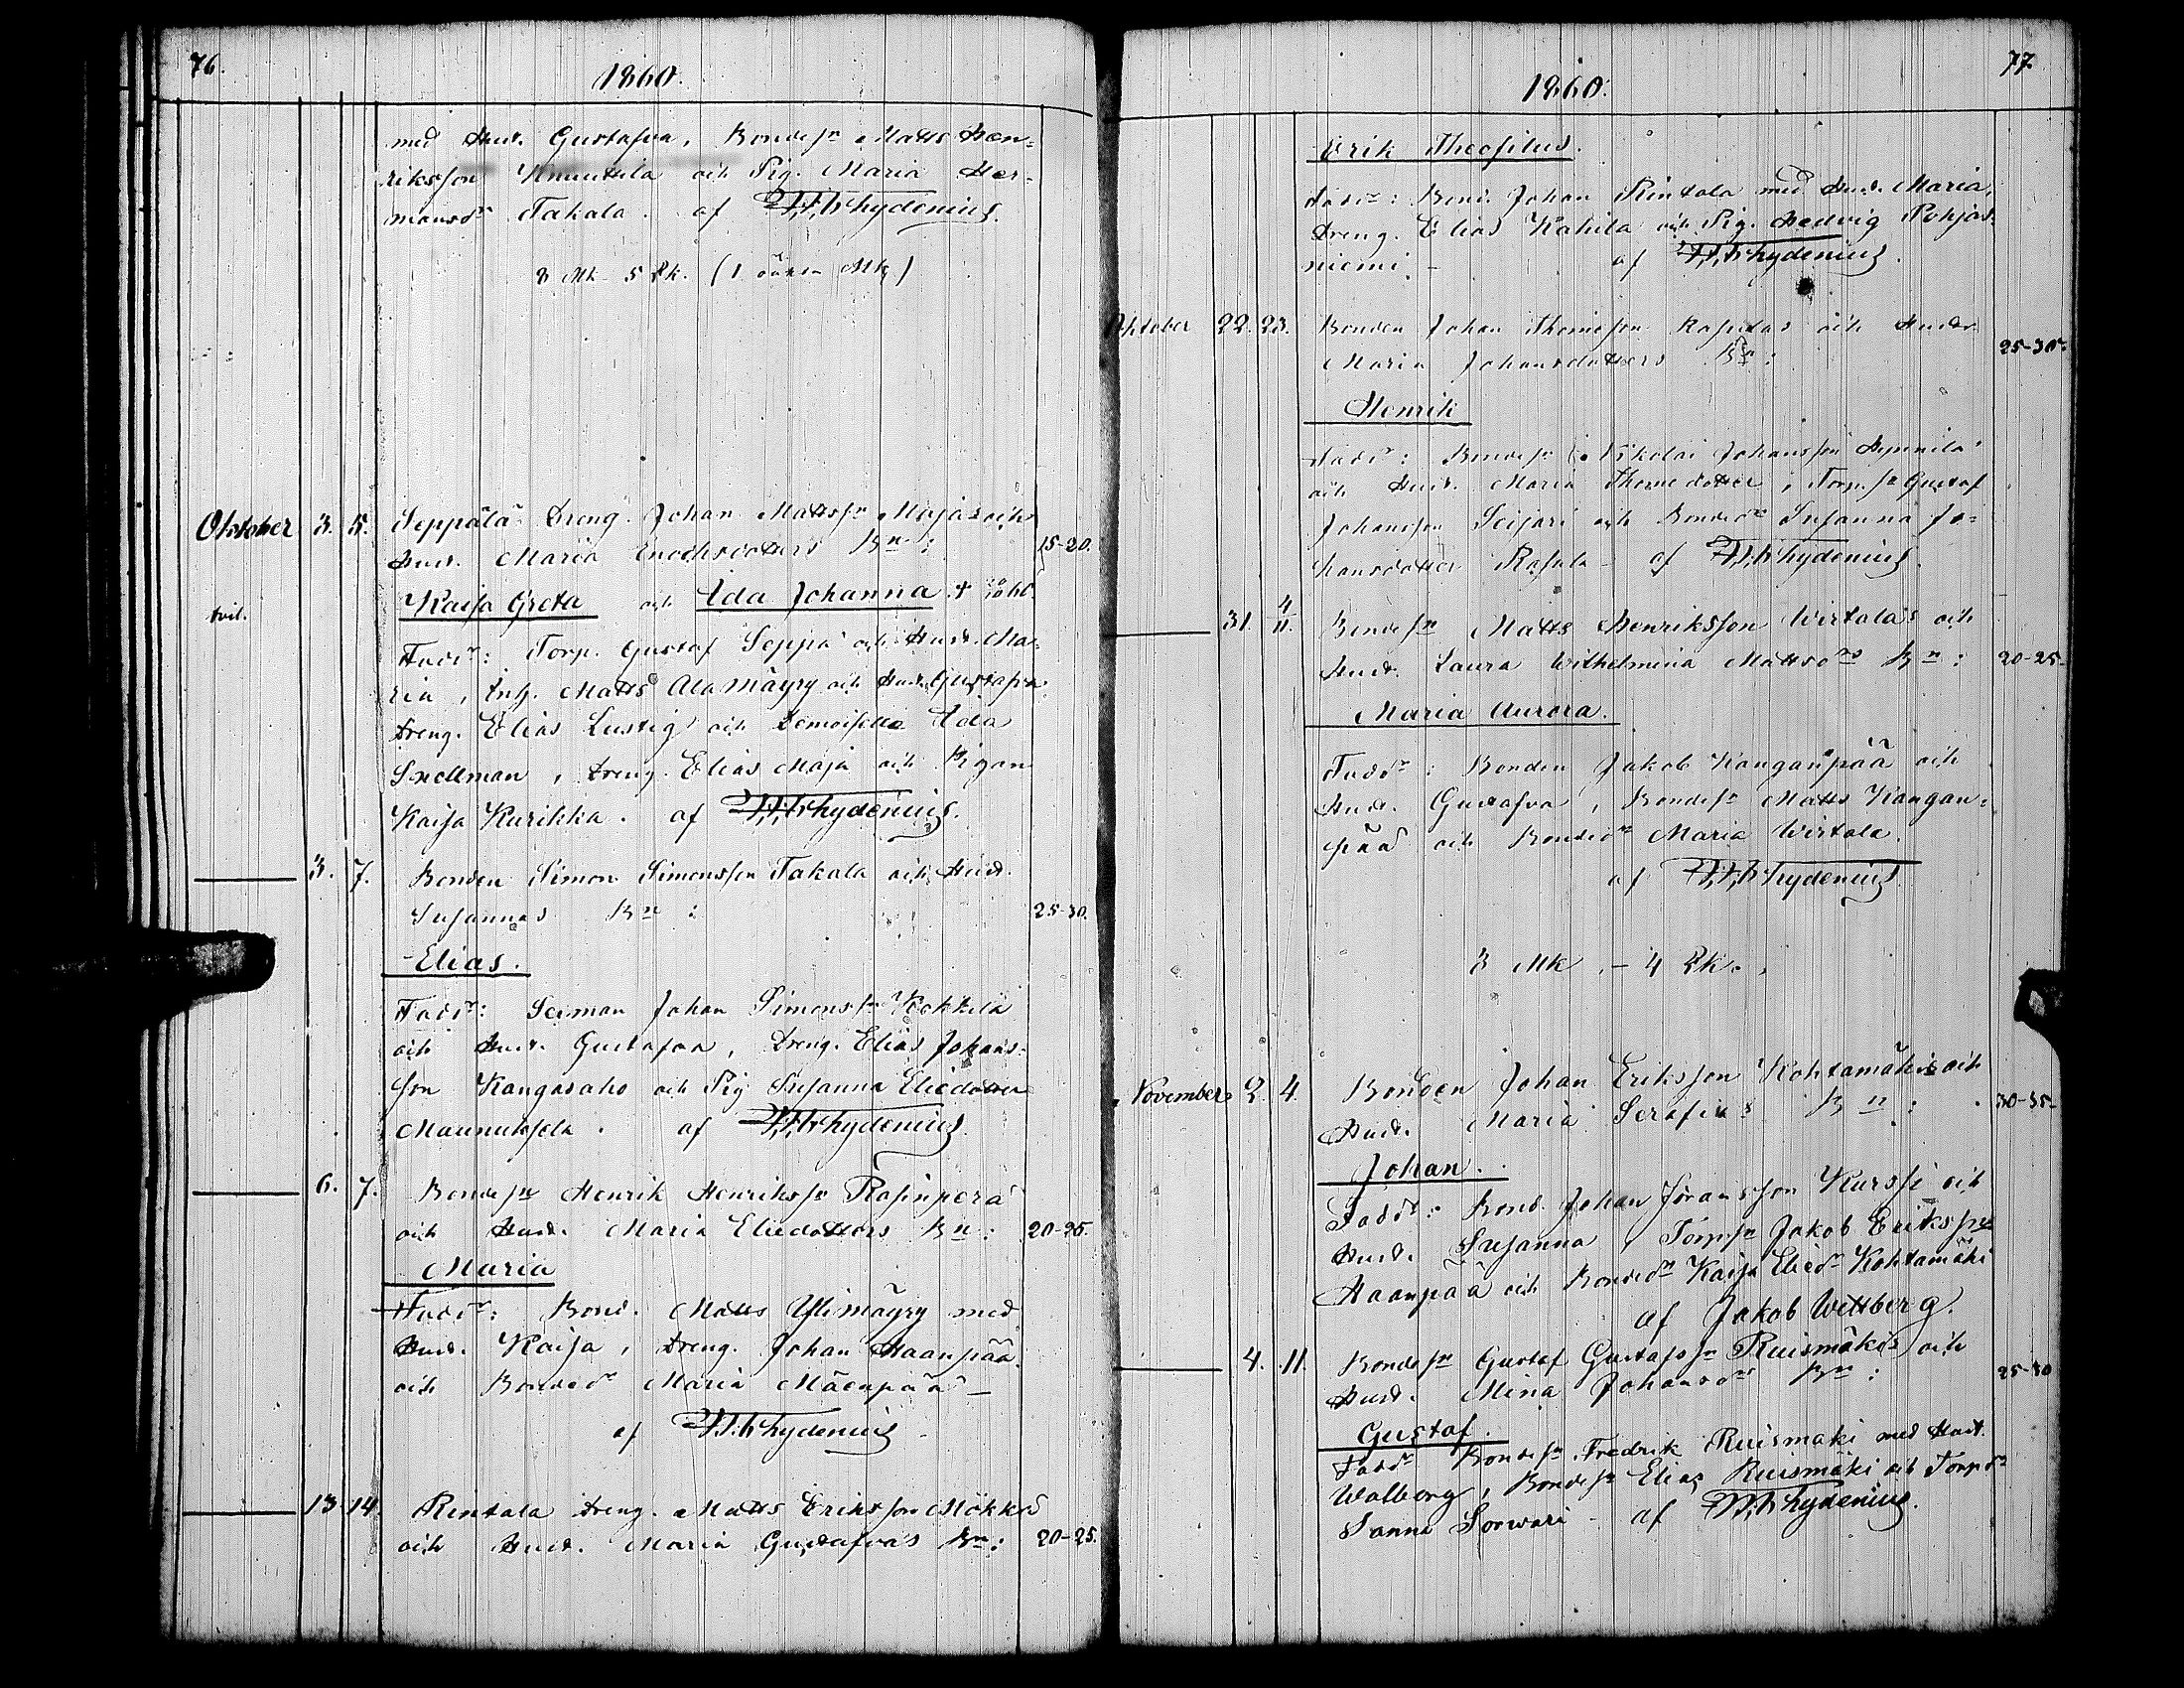 76.
1860.
med Hust. Gustafva, Bondesn Matts Hen=
riksson Knuutila och Pig. Maria Her=
mansdr Takala. af Hydenius.
8 Mk 5 Qk. (1 oäkta Mk)
Oktober 3. 5. Seppälä Dreng. Johan Mattssn Majas och
Hust. Maria Enochsdotters Bn: 15-20.
tvil.
Kaisa Greta och Ida Johanna.
Faddr: Torp. Gustaf Seppä och Hust. Ma=
ria, Inh. Matts Alamäyry och Hust. Gustafva
Dreng. Elias Lustig och Demoiselle Ida
Snellman, Dreng. Elias Maja och Pigan
Kaisa Kurikka. af Hydenius.
3. 7. Bonden Simon Simonsson Takala och Hust.
Susannas Bn: 25-30.
Elias.
Faddr: Johan Simonssn Kokkila
och Hust. Gustafva, Dreng. Elias Johans=
son Kangasaho och Pig Susanna Eliedotter
Maunuksela. af Hydenius.
6. 7. Bondesn Henrik Henrikssn Rasinperä
och Hust. Maria Eliedotters Bn: 20-25.
Maria
Faddr: Bond. Matts Ylimäyry med
Hust. Kaisa, Dreng. Johan Haanpää
och Bondedr Maria Mäenpää —
af Hydenius
13 14. Rintala Dreng. Matts Eriksson Mökkö
och Hust. Maria Gustafvas Bn: 20-25.
77.
1860.
Erik Theofilus.
Faddr: Bond. Johan Rintala med Hust. Maria,
Dreng. Elias Kahila och Pig. Hedvig Pohjas=
niemi. — af Hydenius.
Oktober 22. 23. Bonden Johan Thomeson Rasulas och Hustr.
Maria Johansdotters Bn: 25-30.
Henrik
Faddr: Bondesn Nikolai Johansson Hynnilä
och Hust. Maria Thomedotter, Torp.sn Gustaf
Johansson Seijari och Bondedr Susanna Jo=
hansdotter Rasula — af Hydenius.
31. 4/11. Bondesn Matts Henriksson Wirtalas och
Hust. Laura Wilhelmina Mattsdrs Bn: 20-25.
Maria Aurora.
Faddr: Bonden Jakob Kanganpää och
Hust. Gustafva, Bondesn Matts Kangan=
pää och Bondedr Maria Wirtala.
af Hydenius.
3 Mk. — 4 Qk.
November 2. 4. Bonden Johan Eriksson Kohtamäkis och
Hust. Maria Serafias Bn: 30-35.
Johan.
Faddr: Bond. Johan Jöransson Kurssi och
Hust. Susanna, Torp.sn Jakob Erikssn
Haanpää och Bondedr Kaisa Eliedr Kohtamäki
af Jakob Wettberg.
4. 11. Bondesn Gustaf Gustafssn Ruismäkis och
Hust. Mina Johansdrs Bn: 25-30
Gustaf.
Faddr Bondesn Fredrik Ruismäki med Hust.
Walborg, Bondesn Elias Ruismäki och Torpdr
Sanna Sorwari — af Hydenius.